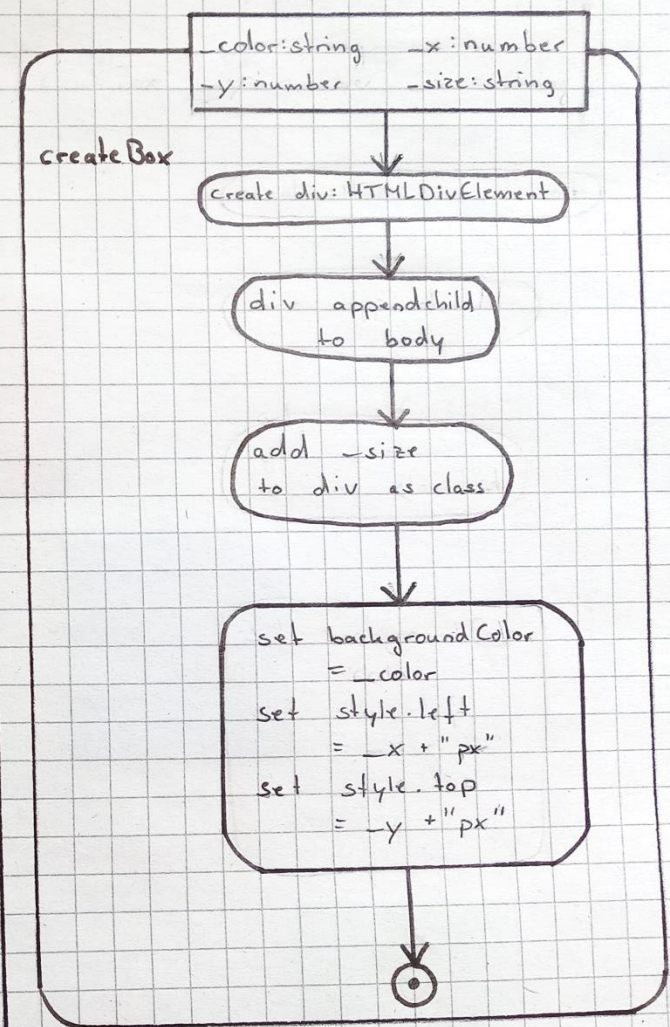 _color:string _x:number
_y:number _size:string
createBox
create div: HTMLDivElement
div appendchild
to body
add _size
to div as class
set backgroundColor
= _color
set style.left
= _x + "px"
set style.top
= _y + "px"